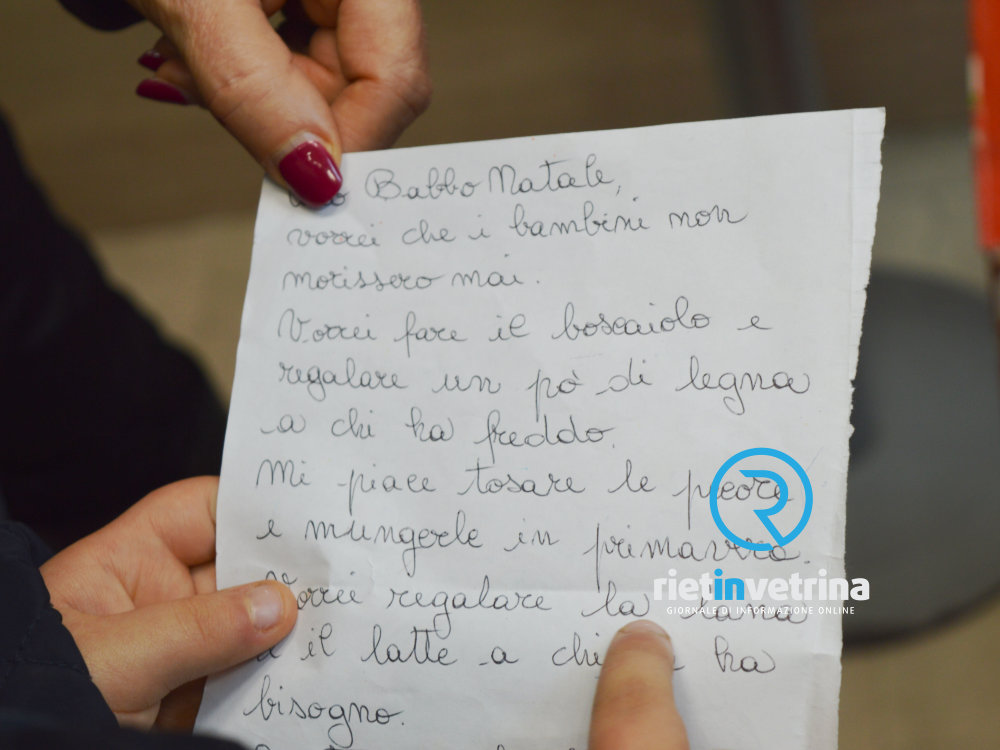 Babbo Natale,
vorrei che i bambini non
morissero mai.
Vorrei fare il boscaiolo e
regalare un pò di legna
a chi ha freddo.
Mi piace tosare le pecore
e mungerle in primavera.
Vorrei regalare la lana
e il latte a chi ha
bisogno.
rietinvetrina
GIORNALE DI INFORMAZIONE ONLINE